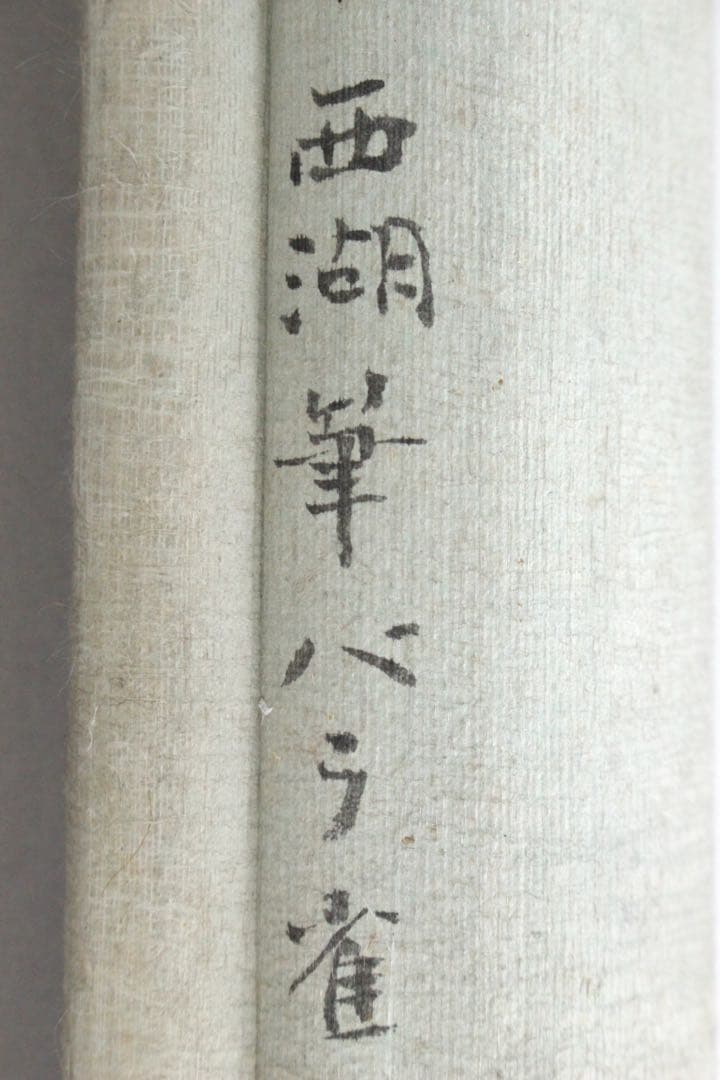 西湖筆バラ雀